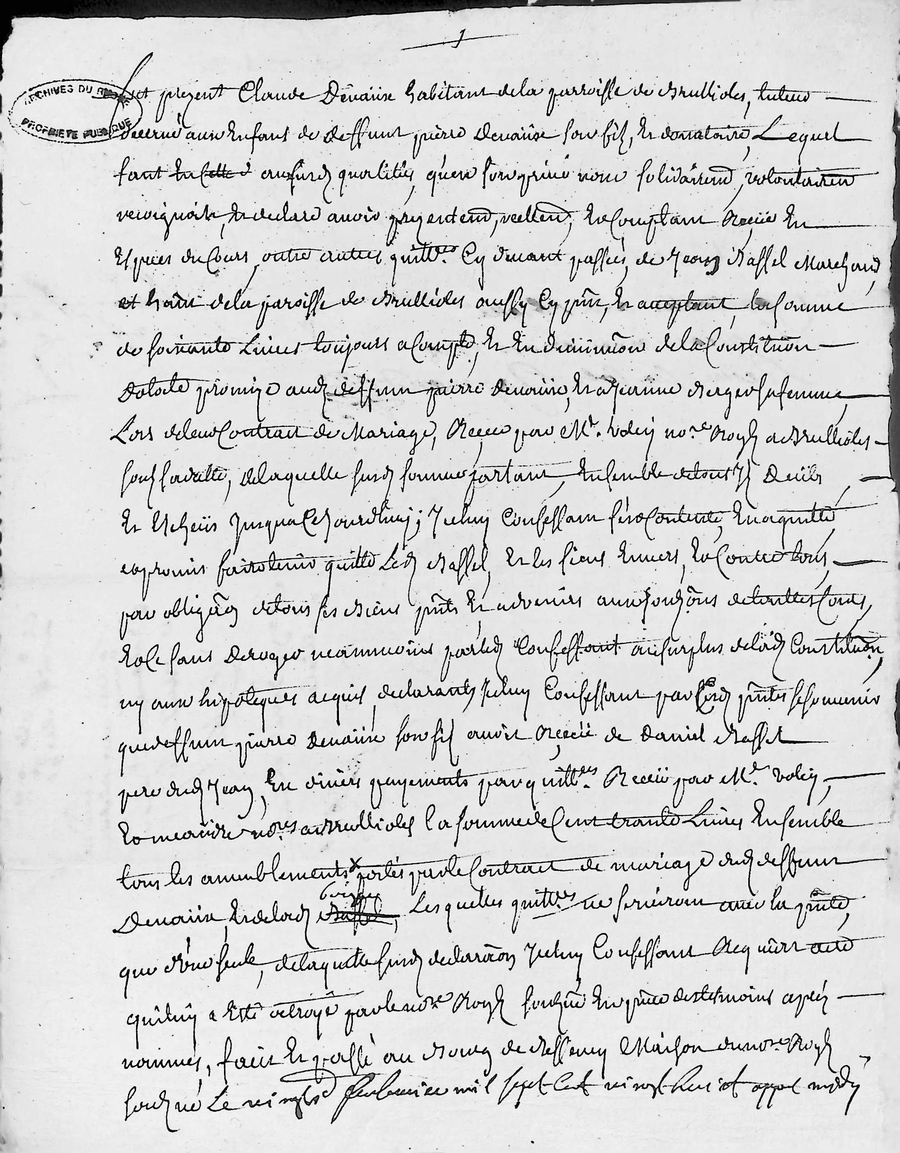 1
ARCHIVES DU RHÔNE
PROPRIÉTÉ PUBLIQUE
Fut present Claude Denauze habitant de la parroisse de Brullioles, tuteur
decerné aux Enfant de deffunt pierre Denauze son fils, Et donataire, Lequel
fant En Cette d ausd qualités, qu'en son privé nom solidairem, volontairem
recognoit, Et declare avoir presentem, reellem, En Comptant Receu En
Especes du Cours, outre autres quitt.ces Cy devant passées, de Jean Bassel Marchand
et hant de la paroisse de Brullioles aussy Cy pnt, Et acceptant, la somme
de soixante Livres toujours a Compte, Et En diminuon de la Constituon
Dotale promise aud deffunt pierre Denauze, Et a Jeanne Berger sa femme,
Lors de leur Contrat de Mariage, Receu par Mr. no.re Royl a Brullioles
sous sa datte, de laquelle susd somme partant, Ensemble de tous Deubs
Et Escheus Jusqua Ce Jourdhuy; Jceluy Confessant s'est Contenté, En a quitté
et promis faire tenir quitte Led Bassel, Et les siens Envers, Et Contre tous,
par obligaon de tous ses Biens pnts Et advenirs aux de touttes Cours,
Et Ce sans Deroger neammoins par led Confessant au surplus de lad Constituon,
ny aux hipoteques acquis, declarants Jceluy Confessant par Ces pntes se souvenir
que deffunt pierre Denauze son fils avoit Receu de Daniel Bassel
pere dud Jean, En divers payements par quitt.ces Receu par Mr.
Et no.res a Brullioles la somme de Cent trante Livres Ensemble
tous les ameublements x portés par le Contract de mariage dud deffunt
Berger
Denauze, Et de lad Bassel, Les quelles quitt.ces ne serviront avec la pnte,
que d'une seule, de laquelle susd declaraon Jceluy Confessant Requiert acte
qui luy a Esté octroyé par le no.re Royl souzné En pnce des tesmoins apres
nommés, fait Et passé au Bourg de Bessenay Maison du no.re Royl
souzné Le vingt Mil sept Cent vingt huict appres midy